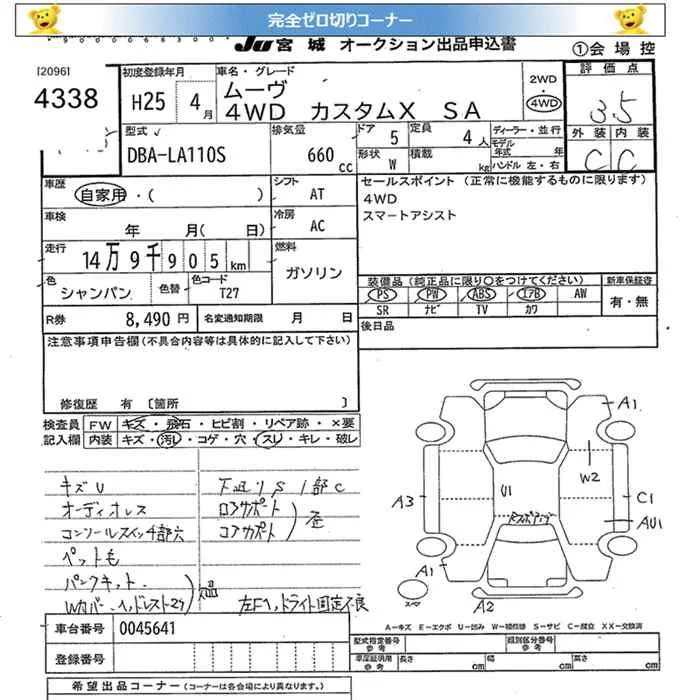 完全ゼロ切りコーナー
JU宮城 オークション出品申込書
①会場控
[2096]
4338
初度登録年月
H25 4月
車名・グレード
ムーヴ
4WD カスタムX SA
2WD
・
4WD
評価点
3.5
外装 内装
C C
型式
DBA-LA110S
排気量
660 cc
ドア 5
定員 4人
形状 W
積載 kg
ディーラー・並行
モデル年式 年
ハンドル 左・右
車歴
自家用・( )
シフト AT
車検
年 月( 日)
冷房 AC
走行
14万9千905km
燃料
ガソリン
色
シャンパン
色替
色コード
T27
R券 8,490円
名変通知期限 月 日
セールスポイント (正常に機能するものに限ります)
4WD
スマートアシスト
装備品(純正品に限り○をつけてください)
新車保証書
PS PW ABS エアB AW
SR ナビ TV カワ
有・無
後日品
注意事項申告欄(不具合内容等は具体的に記入して下さい)
修復歴 有 〔箇所 〕
検査員記入欄
FW キズ・飛石・ヒビ割・リペア跡・×要
内装 キズ・汚レ・コゲ・穴・スレ・キレ・破レ
キズU
オーディオレス
コンソールスイッチ部穴
ペット毛
パンクキット
Wカバー、ヘッドレスト
下廻りS1部C
ロアサポート
コアサポート
歪
左Fヘッドライト固定不良
A1
A3
U1
W2
C1
AU1
A1
A2
スペア
A=キズ E=エクボ U=凹み W=補修跡 S=サビ C=腐食 XX=交換済
車台番号 0045641
登録番号
型式指定番号
類別区分番号
車庫証明用参考
長さ cm
幅 cm
高さ cm
希望出品コーナー(コーナーは各会場により異なります。)